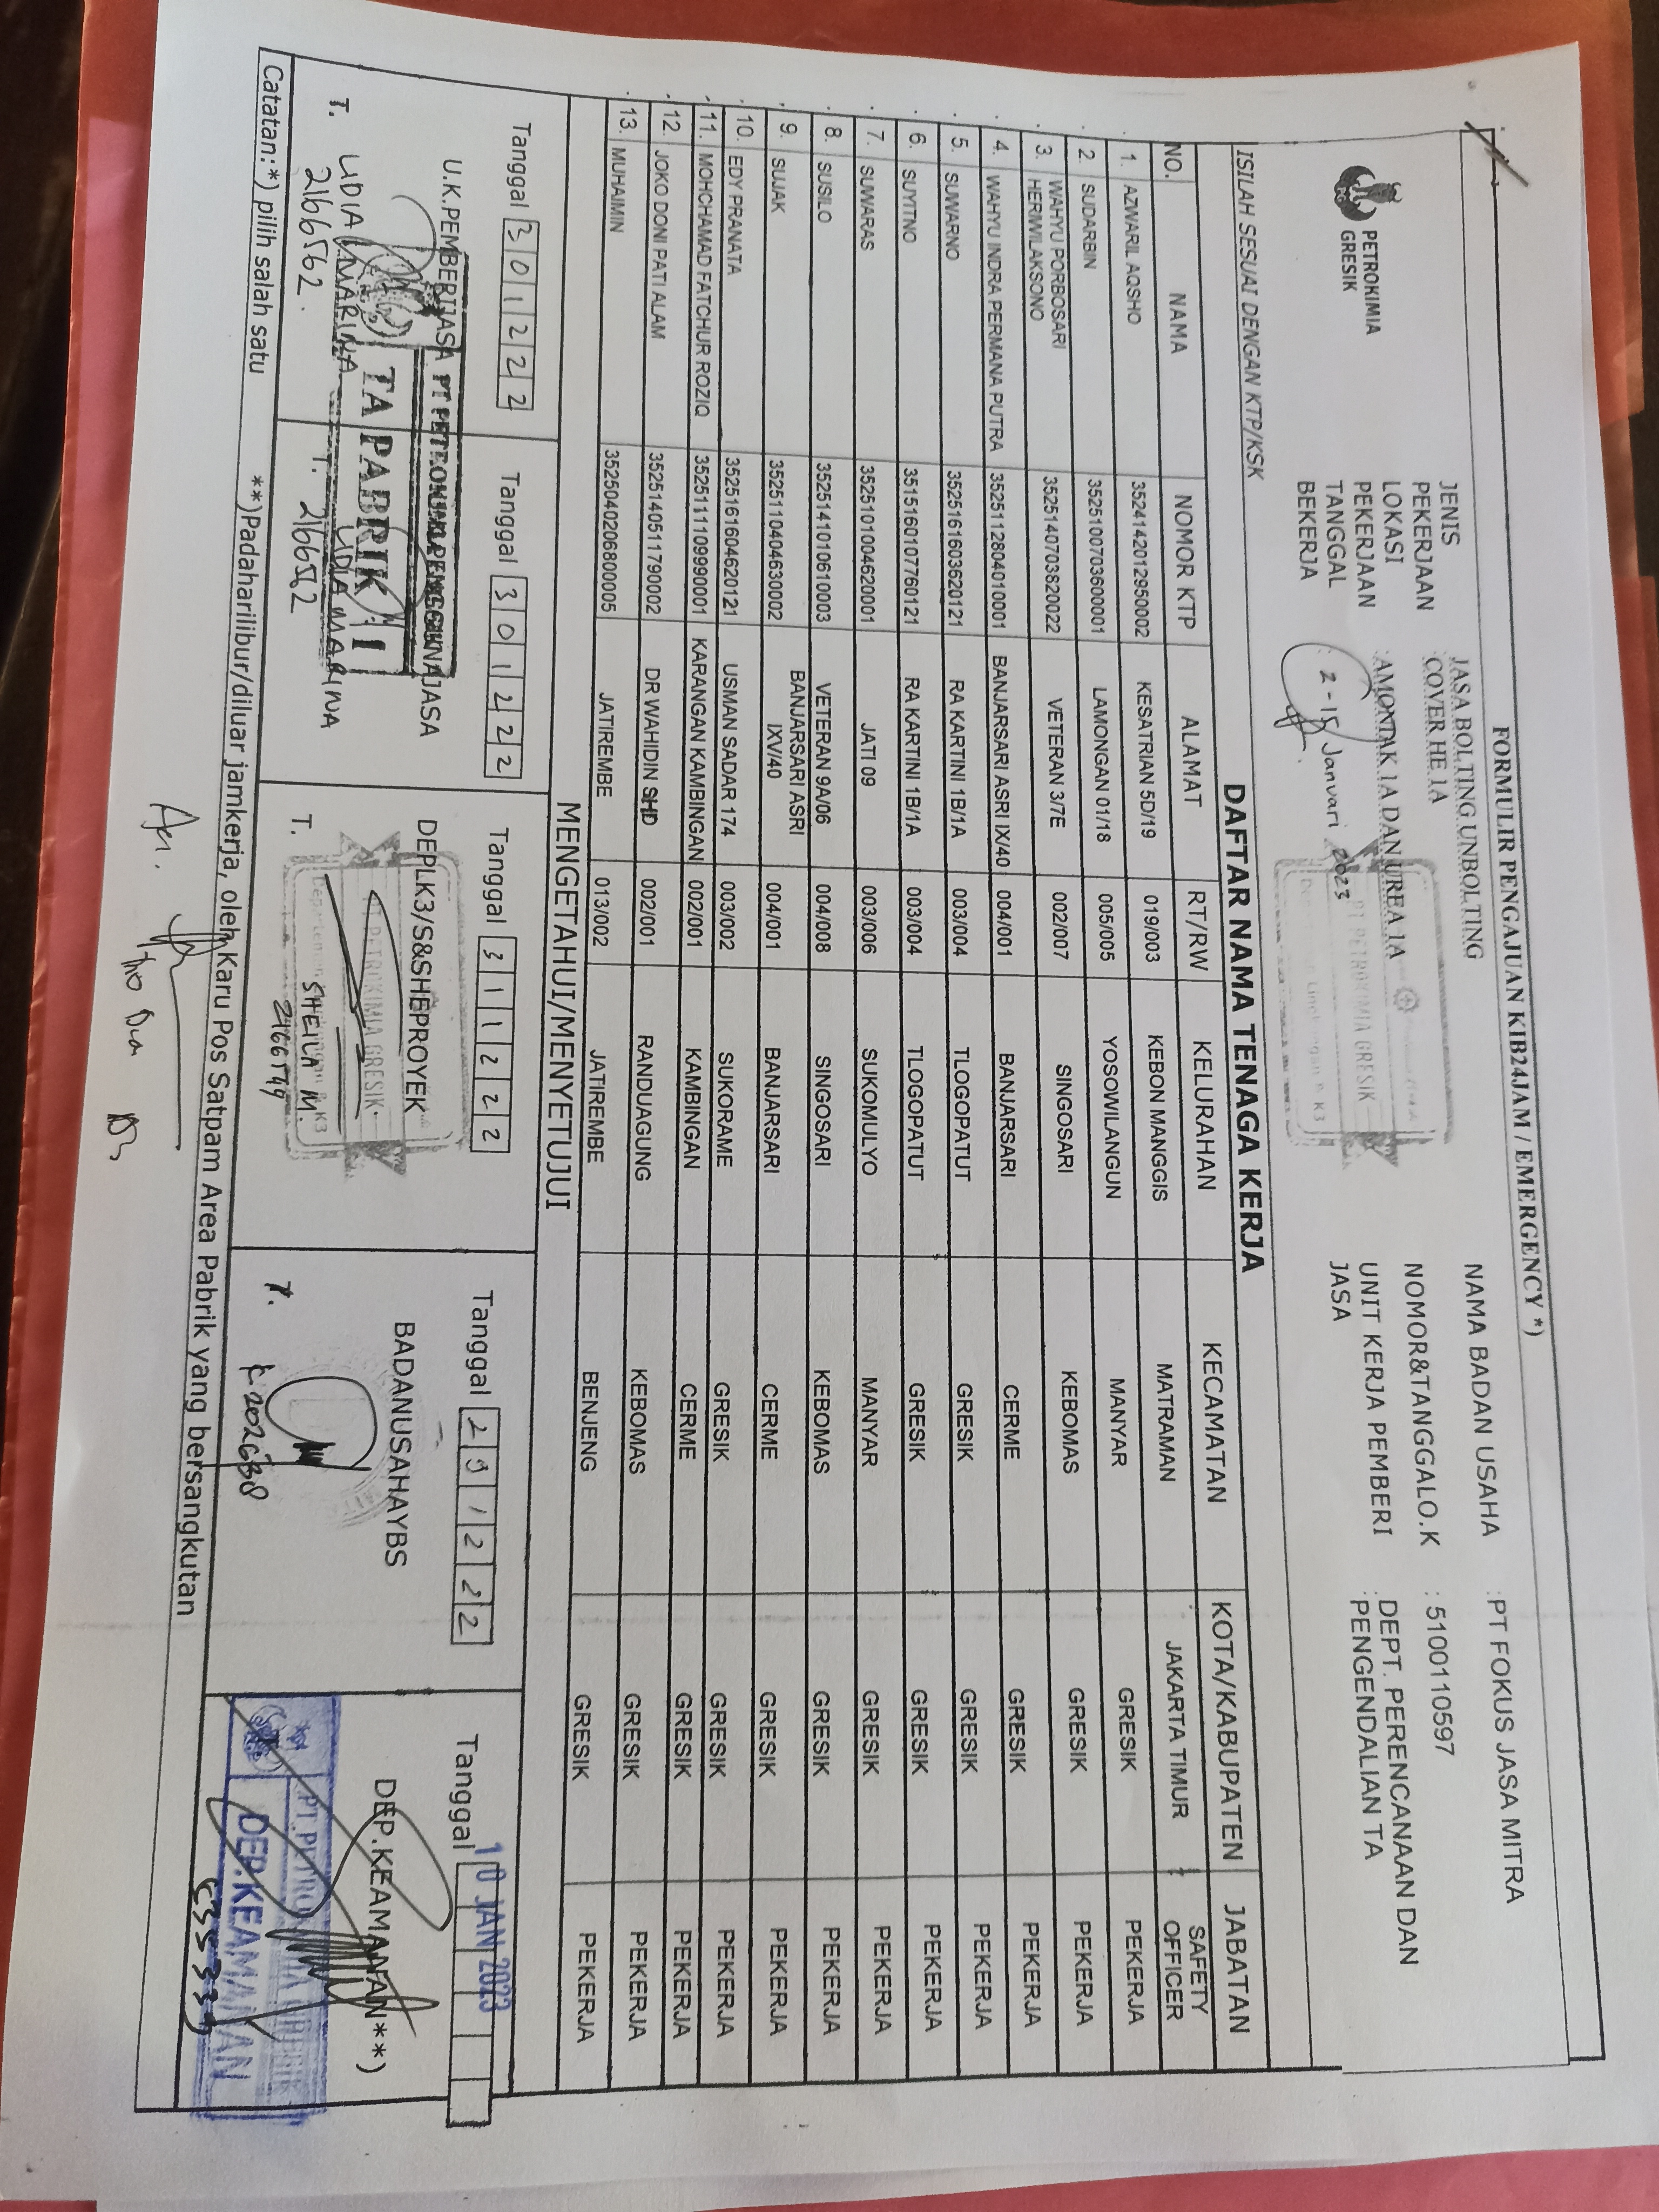 FORMULIR PENGAJUAN KIB24JAM / EMERGENCY *)
PETROKIMIA
GRESIK
JENIS
PEKERJAAN
JASA BOLTING UNBOLTING
:COVER HE 1A
LOKASI
PEKERJAAN
:AMONIAK 1A DAN UREA 1A
TANGGAL
BEKERJA
: 2 - 15 Januari 2023
NAMA BADAN USAHA :PT FOKUS JASA MITRA
NOMOR&TANGGALO.K : 5100110597
UNIT KERJA PEMBERI
JASA
DEPT. PERENCANAAN DAN
:PENGENDALIAN TA
PT PETROKIMIA GRESIK
ISILAH SESUAI DENGAN KTP/KSK
DAFTAR NAMA TENAGA KERJA
NO. NAMA NOMOR KTP ALAMAT RT/RW KELURAHAN KECAMATAN KOTA/KABUPATEN JABATAN
1. AZWARIL AQSHO 3524142012950002 KESATRIAN 5D/19 019/003 KEBON MANGGIS MATRAMAN JAKARTA TIMUR SAFETY OFFICER
2. SUDARBIN 3525100703600001 LAMONGAN 01/18 005/005 YOSOWILANGUN MANYAR GRESIK PEKERJA
3. WAHYU PORBOSARI HERWILAKSONO 3525140703820022 VETERAN 3/7E 002/007 SINGOSARI KEBOMAS GRESIK PEKERJA
4. WAHYU INDRA PERMANA PUTRA 3525112804010001 BANJARSARI ASRI IX/40 004/001 BANJARSARI CERME GRESIK PEKERJA
5. SUWARNO 3525161603620121 RA KARTINI 1B/1A 003/004 TLOGOPATUT GRESIK GRESIK PEKERJA
6. SUYITNO 3515160107760121 RA KARTINI 1B/1A 003/004 TLOGOPATUT GRESIK GRESIK PEKERJA
7. SUWARAS 3525101004620001 JATI 09 003/006 SUKOMULYO MANYAR GRESIK PEKERJA
8. SUSILO 3525141010610003 VETERAN 9A/06 004/008 SINGOSARI KEBOMAS GRESIK PEKERJA
9. SUJAK 3525110404630002 BANJARSARI ASRI IXV/40 004/001 BANJARSARI CERME GRESIK PEKERJA
10. EDY PRANATA 3525161604620121 USMAN SADAR 174 003/002 SUKORAME GRESIK GRESIK PEKERJA
11. MOHCHAMAD FATCHUR ROZIQ 3525111109990001 KARANGAN KAMBINGAN 002/001 KAMBINGAN CERME GRESIK PEKERJA
12. JOKO DONI PATI ALAM 3525140511790002 DR WAHIDIN SHD 002/001 RANDUAGUNG KEBOMAS GRESIK PEKERJA
13. MUHAIMIN 3525040206800005 JATIREMBE 013/002 JATIREMBE BENJENG GRESIK PEKERJA
MENGETAHUI/MENYETUJUI
Tanggal 301222
Tanggal 301222
Tanggal 311222
Tanggal 291222
Tanggal 10 JAN 2023
U.K.PEMBERIJASA
DEPLK3/S&SHEPROYEK
BADANUSAHAYBS
DEP.KEAMANAN**)
TA PABRIK I
PT PETROKIMIA GRESIK
DEP.KEAMANAN
T. LIDIA MARINA
2166562.
T. LIDIA MARINA
2166562
T. SHEILA M.
2166549
T.
Catatan:*) pilih salah satu **)Padaharilibur/diluar jamkerja, oleh Karu Pos Satpam Area Pabrik yang bersangkutan